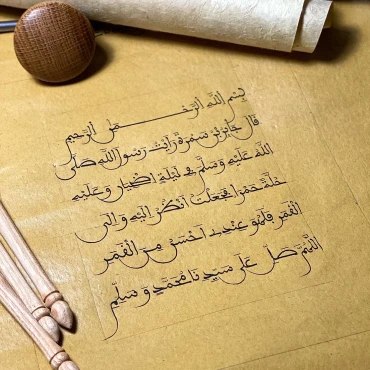 بِسْمِ اللَّهِ الرَّحْمَٰنِ الرَّحِيمِ
قَالَ جَابِرُ بْنُ سَمُرَةَ رَأَيْتُ رَسُولَ اللَّهِ صَلَّى
اللَّهُ عَلَيْهِ وَسَلَّمَ فِي لَيْلَةٍ إِضْحِيَانٍ وَعَلَيْهِ
حُلَّةٌ حَمْرَاءُ فَجَعَلْتُ أَنْظُرُ إِلَيْهِ وَإِلَى
الْقَمَرِ فَلَهُوَ عِنْدِي أَحْسَنُ مِنَ الْقَمَرِ
اللَّهُمَّ صَلِّ عَلَى سَيِّدِنَا مُحَمَّدٍ وَسَلِّمْ